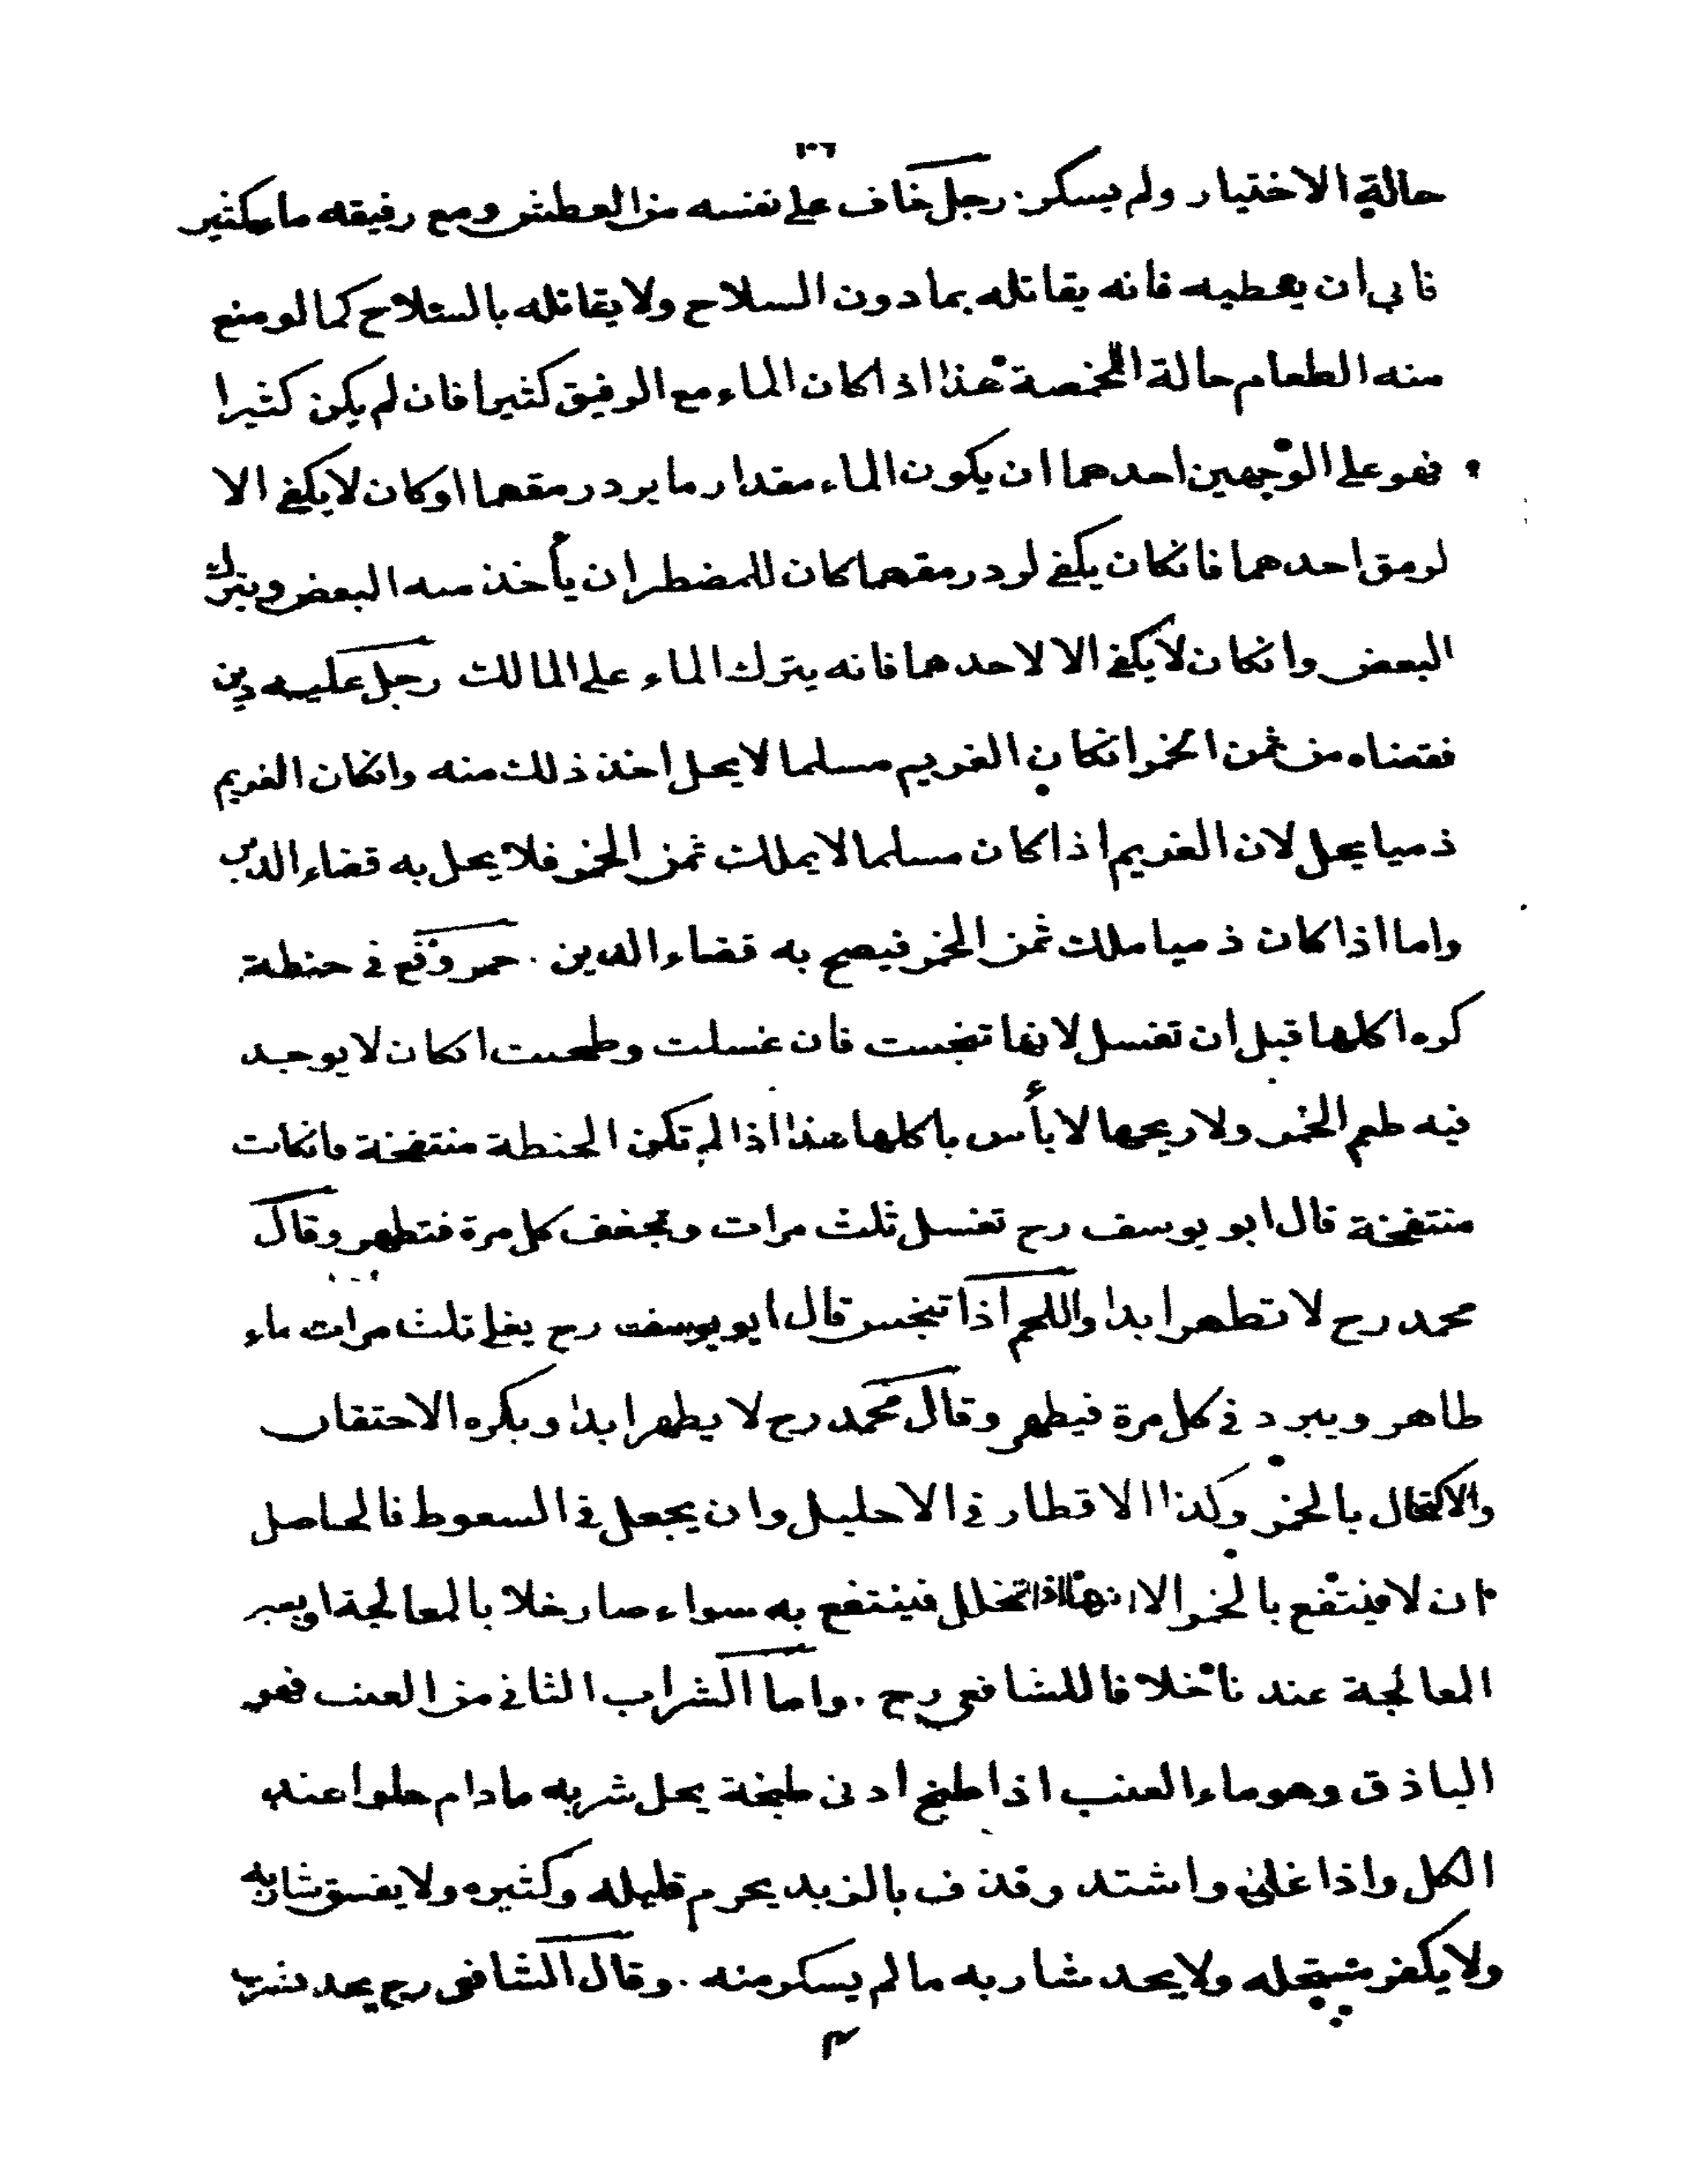 حالة الاختيار ولم يسكر . رجل خاف على نفسه من العطش ومع رفيقه ماء كثير
فابى ان يعطيه فانه يقاتله بما دون السلاح ولا يقاتله بالسلاح كما لو منع
منه الطعام حالة المخمصة هذا اذا كان الماء مع الرفيق كثيرا فان لم يكن كثيرا
فهو على الوجهين احدهما ان يكون الماء مقدار ما يرد رمقهما او كان لا يكفى الا
لرمق احدهما فانكان يكفى لرد رمقهما كان للمضطر ان يأخذ منه البعض ويترك
البعض وانكان لا يكفى الا لاحدهما فانه يترك الماء على المالك رجل عليه دين
فقضاه من ثمن الخمر انكان الغريم مسلما لا يحل اخذ ذلك منه وانكان الغريم
ذميا يحل لان الغريم اذا كان مسلما لا يملك ثمن الخمر فلا يحل به قضاء الدين
واما اذا كان ذميا ملك ثمن الخمر فيصح به قضاء الدين . خمر وقع فى حنطة
كره اكلها قبل ان تغسل لانها تنجست فان غسلت وطحنت انكان لا يوجد
فيه طعم الخمر ولا ريحها لا بأس باكلها هذا اذا لم تكن الحنطة منتفخة فانكانت
منتفخة قال ابو يوسف رح تغسل ثلث مرات وتجفف كل مرة فتطهر وقال
محمد رح لا تطهر ابدا واللحم اذا تنجس قال ابو يوسف رح يغلى ثلث مرات بماء
طاهر ويبرد فى كل مرة فيطهر وقال محمد رح لا يطهر ابدا ويكره الاحتقان
والاكتحال بالخمر وكذا الاقطار فى الاحليل وان يجعل فى السعوط فالحاصل
ان لا ينتفع بالخمر الا انها اذا تخلل فينتفع به سواء صار خلا بالمعالجة او بغير
المعالجة عندنا خلافا للشافعى رح . واما الشراب الثانى من العنب فهو
الباذق وهو ماء العنب اذا طبخ ادنى طبخة يحل شربه مادام حلوا عند
الكل واذا غلى واشتد وقذف بالزبد يحرم قليله وكثيره ولا يفسق شاربه
ولا يكفر مستحله ولا يحد شاربه ما لم يسكر منه . وقال الشافعى رح يحد بشرب